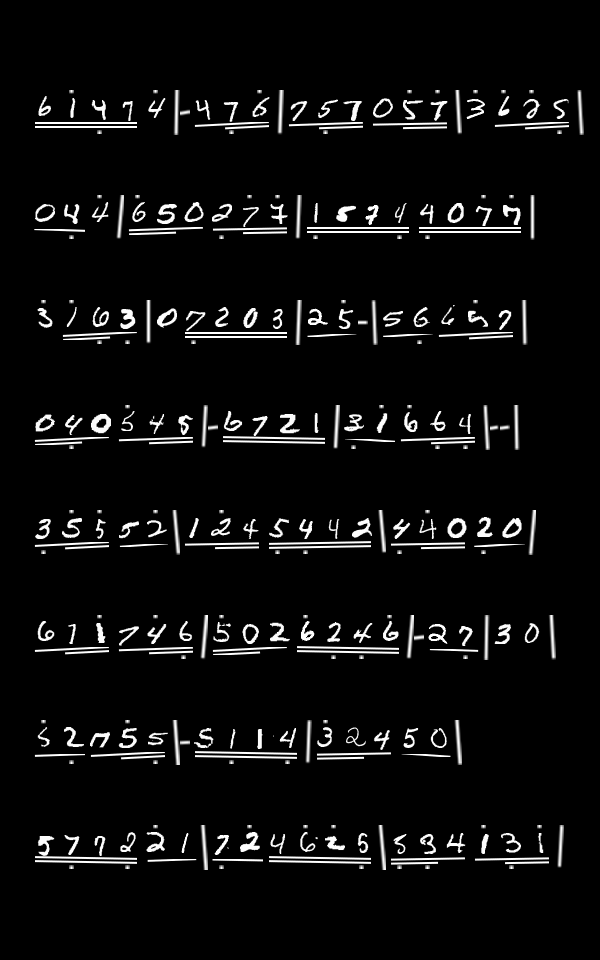 6 1 4 7 4 | - 4 7 6 | 7 5 7 0 5 7 | 3 6 2 5 |
0 4 4 | 6 5 0 2 7 7 | 1 5 7 4 4 0 7 7 |
3 1 6 3 | 0 7 2 0 3 | 2 5 - | 5 6 6 5 7 |
0 4 0 5 4 5 | - 6 7 2 1 | 3 1 6 6 4 | - - |
3 5 5 5 2 | 1 2 4 5 4 4 2 | 4 4 0 2 0 |
6 7 1 7 4 6 | 5 0 2 6 2 4 6 | - 2 7 | 3 0 |
5 2 7 5 5 | - 5 1 1 4 | 3 2 4 5 0 |
5 7 7 2 2 1 | 7 2 4 6 2 5 | 5 3 4 1 3 1 |